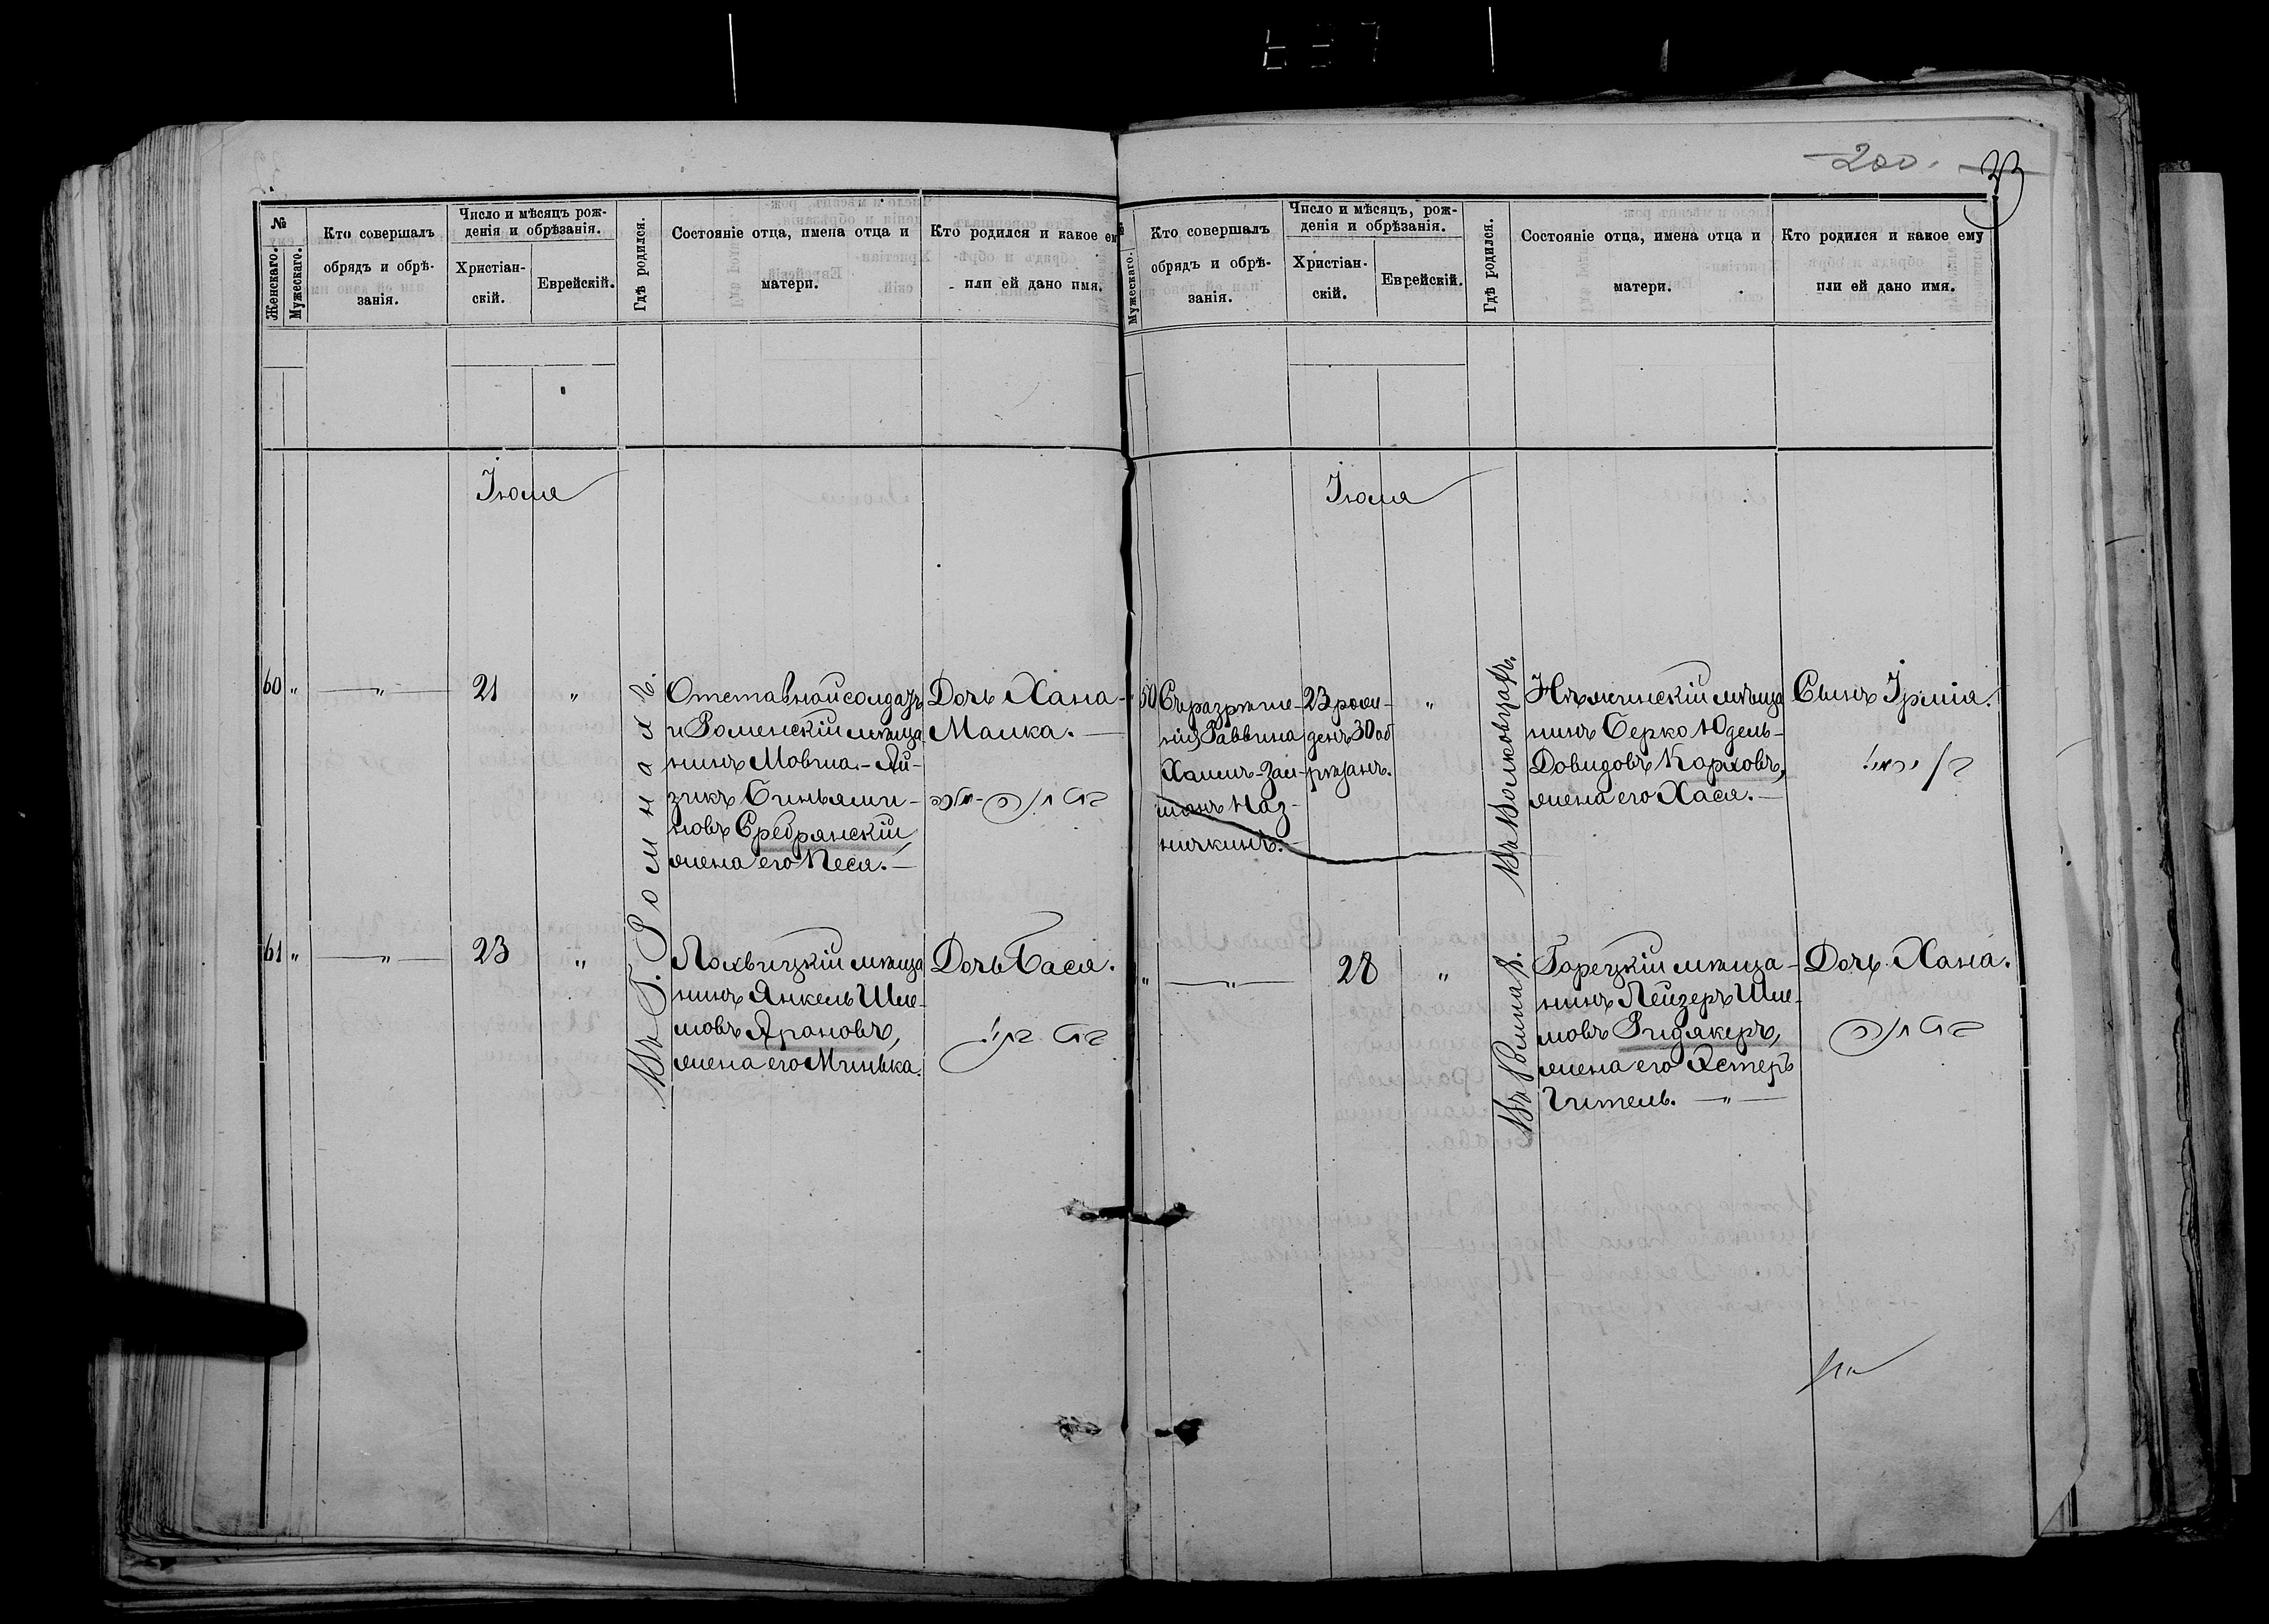 200. 23
№
Женскаго.
Мужескаго.
Кто совершалъ
обрядъ и обрѣ-
занія.
Число и мѣсяцъ рож-
денія и обрѣзанія.
Христіан-
скій.
Еврейскій.
Гдѣ родился.
Состояніе отца, имена отца и
матери.
Кто родился и какое ему
или ей дано имя.
Іюля
60 " — " — 21 "
Въ Г. Ромнахъ.
Отставной солдатъ
и Роменскій мѣща
нинъ Мовша-Ай-
зикъ Биньями-
новъ Сребрянскій
жена его Песя.—
Дочь Хана-
Малка.—
בת חנה-מלכה
61 " — " — 23 "
Лохвицкій мѣща
нинъ Янкель Шле-
мовъ Ароновъ,
жена его Минька.
Дочь Бася.
Мужескаго.
Кто совершалъ
обрядъ и обрѣ-
занія.
Число и мѣсяцъ, рож-
денія и обрѣзанія.
Христіан-
скій.
Еврейскій.
Гдѣ родился.
Состояніе отца, имена отца и
матери.
Кто родился и какое ему
или ей дано имя.
Іюля
50
Съ разрѣше-
нія Раввина
Хаимъ-Зал-
манъ
23 рож-
денъ 30 об
рѣзанъ.
"
Въ
мѣща
нинъ Берко Юдель-
Довидовъ Карповъ,
жена его Хася.—
Сынъ
" — " — 28 "
Въ Ромнахъ.
Горецкій мѣща-
нинъ Лейзеръ Шле-
мовъ
жена его Эстеръ
Гитель. — " —
Дочь Хана.
בת חנה